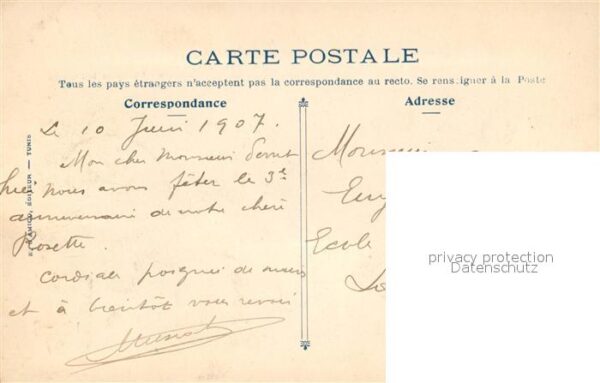 CARTE POSTALE
Tous les pays étrangers n'acceptent pas la correspondance au recto. Se renseigner à la Poste
Correspondance
Adresse
Le 10 Juin 1907.
Mon cher Monsieur
hier nous avons fêter le 3e
anniversaire de notre chère
Rosette.
Cordiale poignée de mains
et à bientôt vous revoir
Monsieur
Eug
Ecole
ÉDITEUR — TUNIS
privacy protection
Datenschutz